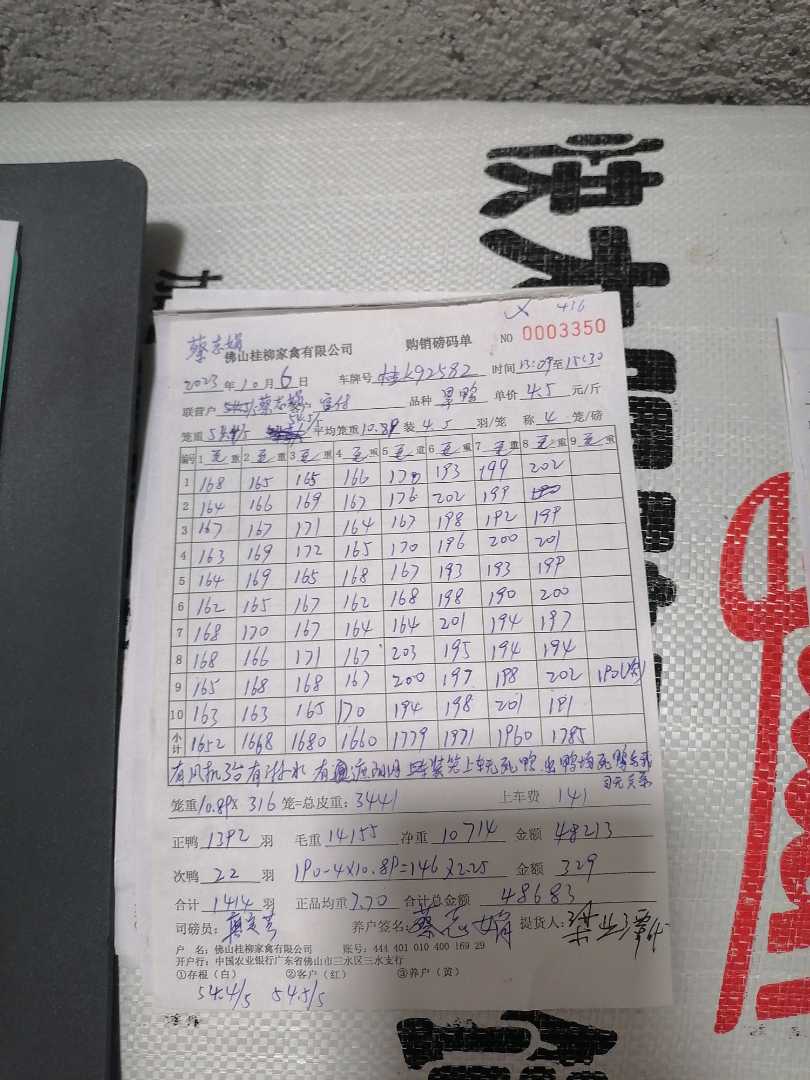 快大
416
蔡志娟
佛山桂柳家禽有限公司 购销磅码单 NO 0003350
2023年10月6日 车牌号 桂K92582 时间13:09至15:30
联营户 蔡志娟 客户 品种 单价 4.5 元/斤
笼重 平均笼重10.89 装 4.5 羽/笼 称 4 笼/磅
编号 1 毛重 2 毛重 3 毛重 4 毛重 5 毛重 6 毛重 7 毛重 8 毛重 9 毛重
1 168 165 165 166 170 193 199 202
2 164 166 169 167 176 202 199
3 167 167 171 164 167 198 192 199
4 163 169 172 165 170 196 200 201
5 164 169 165 168 167 193 193 199
6 162 165 167 162 168 198 190 200
7 168 170 167 164 164 201 194 197
8 168 166 171 167 203 195 194 194
9 165 168 168 167 200 197 198 202 190(次)
10 163 163 165 170 194 198 201 191
小计 1652 1668 1680 1660 1779 1971 1960 1785
有风机3台有
笼重10.89× 316 笼=总皮重: 3441 上车费 141
正鸭 1392 羽 毛重 14155 净重 10714 金额 48213
次鸭 22 羽 190-4×10.89=146×2.25 金额 329
合计 1414 羽 正品均重 7.70 合计总金额 48683
司磅员: 养户签名: 蔡志娟 提货人:
户 名: 佛山桂柳家禽有限公司 账号: 444 401 010 400 169 29
开户行: 中国农业银行广东省佛山市三水区三水支行
①存根(白) ②客户(红) ③养户(黄)
54.4/5 54.5/5